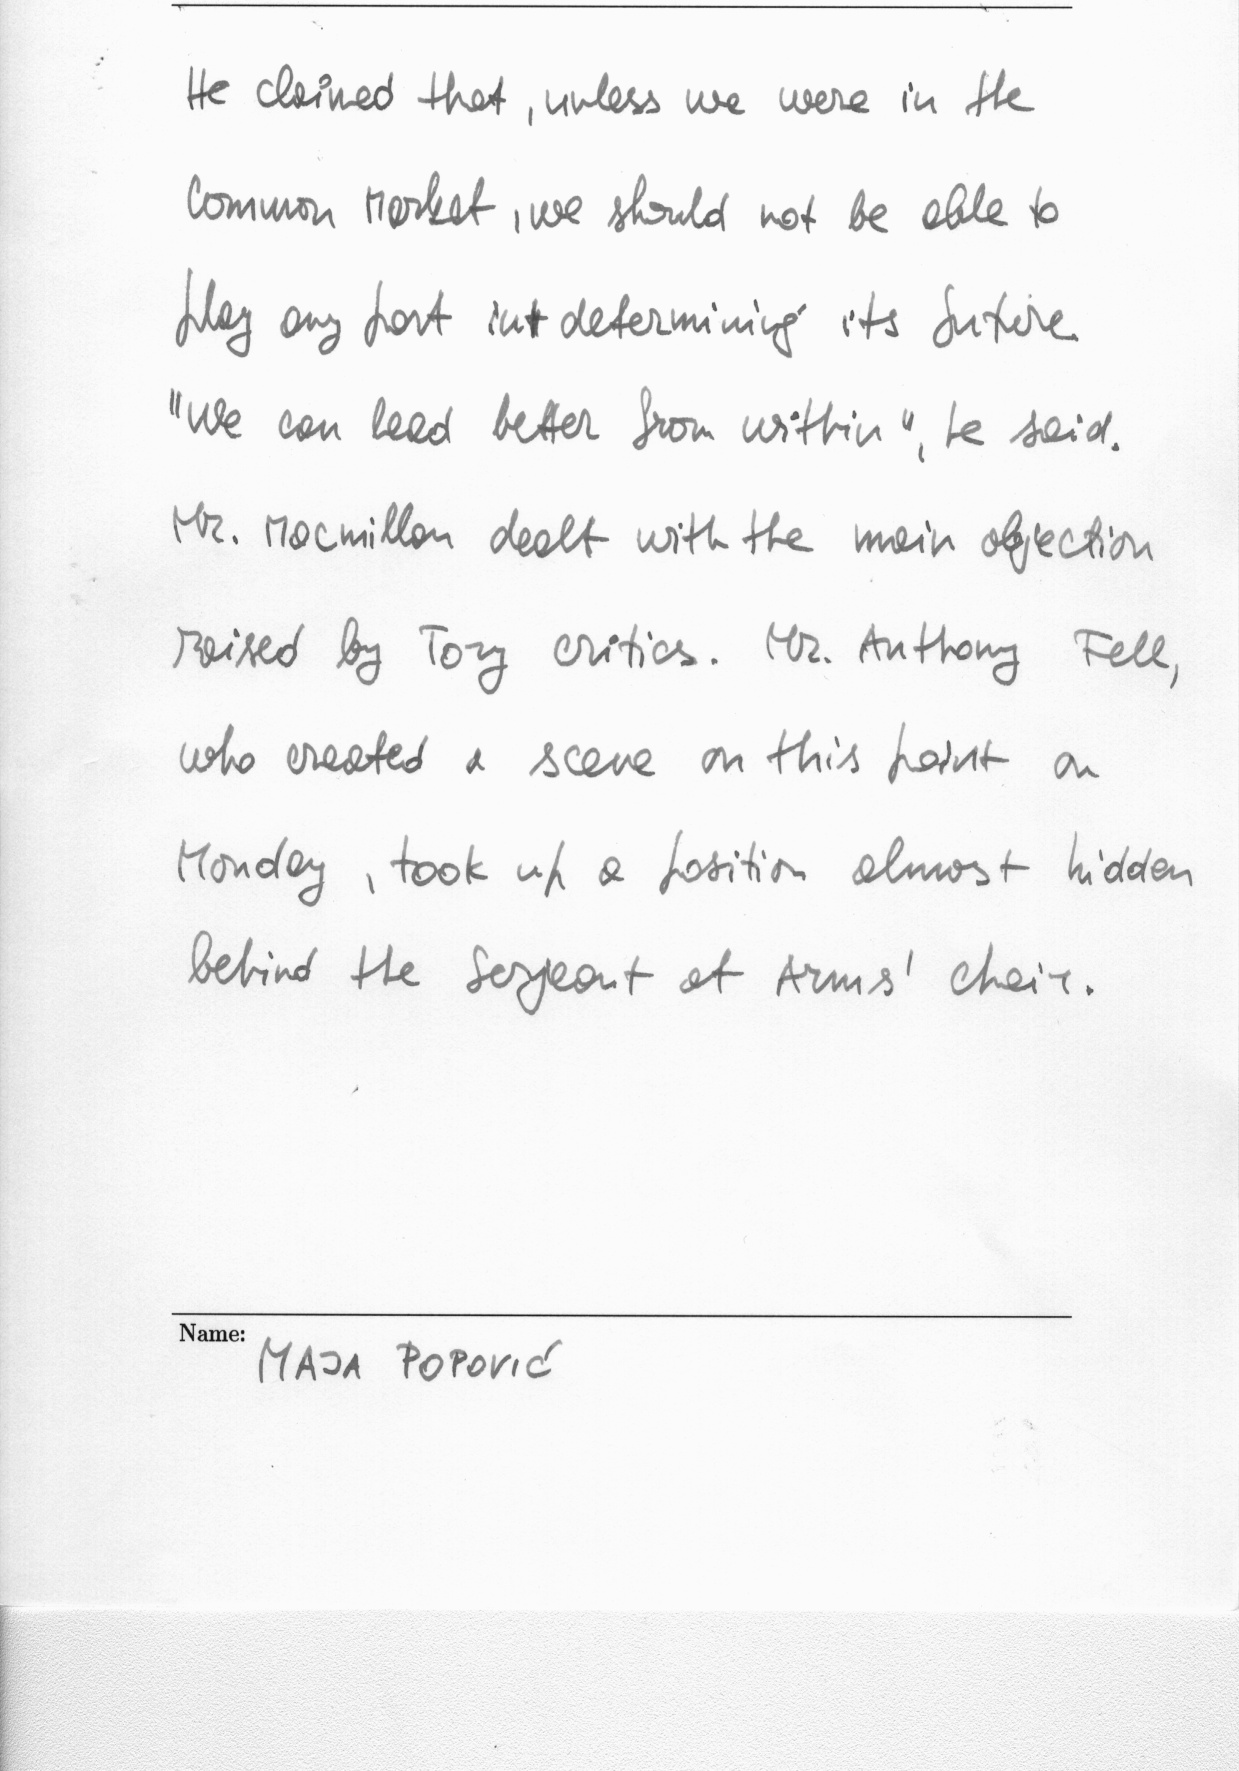 He claimed that, unless we were in the
Common Market, we should not be able to
play any part in determining its future.
"We can lead better from within", he said.
Mr. Macmillan dealt with the main objection
raised by Tory critics. Mr. Anthony Fell,
who created a scene on this point on
Monday, took up a position almost hidden
behind the Serjeant at Arms' chair.
Name:
MAJA POPOVIĆ